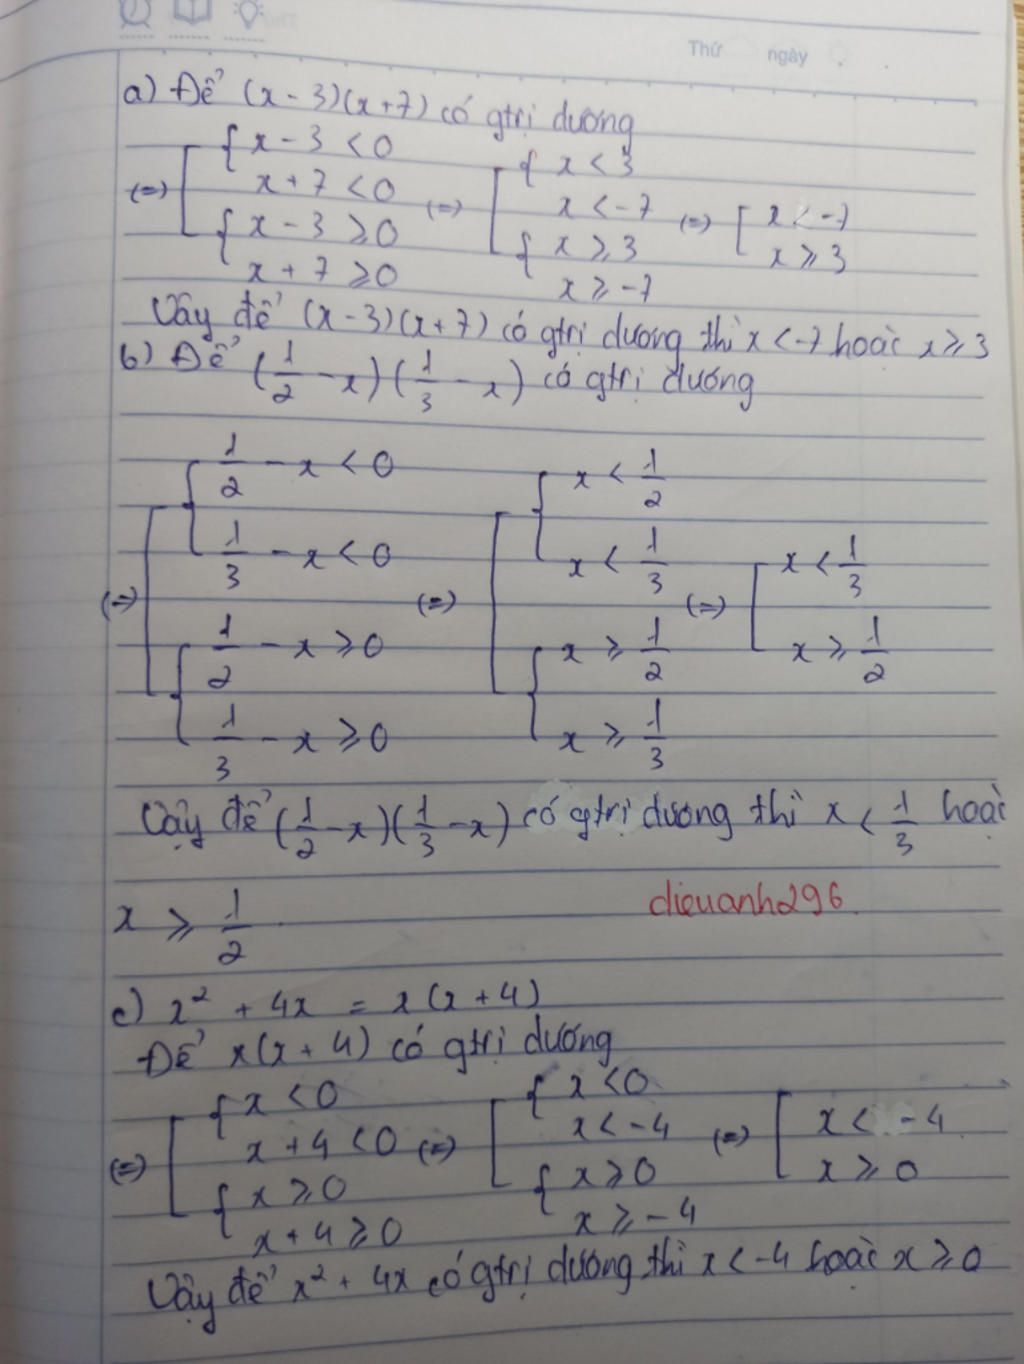 Thứ ngày
a) Để (x - 3)(x+7) có gtrị dương
x - 3 < 0
x + 7 < 0
x - 3 ⩾ 0
x + 7 ⩾ 0
(=) x < 3
x < -7
x ⩾ 3
x ⩾ -7
(=) x < -7
x ⩾ 3
Vậy để (x - 3)(x + 7) có gtrị dương thì x < -7 hoặc x ⩾ 3
b) Để (1/2 - x)(1/3 - x) có gtrị dương
(=) 1/2 - x < 0
1/3 - x < 0
1/2 - x ⩾ 0
1/3 - x ⩾ 0
(=) x < 1/2
x < 1/3
x ⩾ 1/2
x ⩾ 1/3
(=) x < 1/3
x ⩾ 1/2
Vậy để (1/2 - x)(1/3 - x) có gtrị dương thì x < 1/3 hoặc
x ⩾ 1/2
dieuanh296.
c) x² + 4x = x(x + 4)
Để x(x + 4) có gtrị dương
(=) x < 0
x + 4 < 0
x ⩾ 0
x + 4 ⩾ 0
(=) x < 0
x < -4
x ⩾ 0
x ⩾ -4
(=) x < -4
x ⩾ 0
Vậy để x² + 4x có gtrị dương thì x < -4 hoặc x ⩾ 0